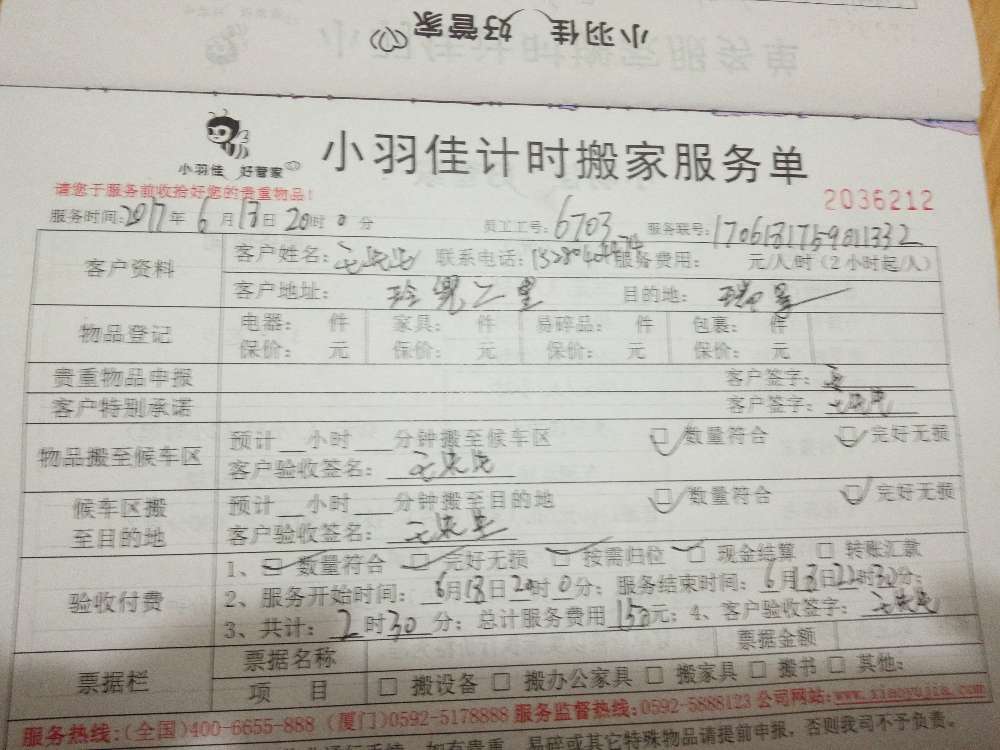 小羽佳 好管家
小羽佳 好管家
小羽佳计时搬家服务单
请您于服务前收拾好您的贵重物品!
2036212
服务时间:2017年6月18日20时0分 员工工号:6703 服务联号:
客户资料
客户姓名: 联系电话: 服务费用: 元/人/时(2小时起/人)
客户地址: 二里 目的地:
物品登记
电器: 件 家具: 件 易碎品: 件 包裹: 件
保价: 元 保价: 元 保价: 元 保价: 元
贵重物品申报 客户签字:
客户特别承诺 客户签字:
物品搬至候车区
预计__小时___分钟搬至候车区 数量符合 完好无损
客户验收签名:
候车区搬至目的地
预计__小时___分钟搬至目的地 数量符合 完好无损
客户验收签名:
验收付费
1、 数量符合 完好无损 按需归位 现金结算 □ 转账汇款
2、服务开始时间: 6月18日20时0分; 服务结束时间: 6月18日22时30分;
3、共计: 2时30分; 总计服务费用150元; 4、客户验收签字:
票据栏
票据名称 票据金额
项 目 □ 搬设备 □ 搬办公家具 □ 搬家具 □ 搬书 □ 其他:
服务热线:(全国)400-6655-888 (厦门)0592-5178888 服务监督热线:0592-5888123 公司网站:www.xiaoyujia.com
如有贵重、易碎或其它特殊物品请提前申报,否则我司不予负责。